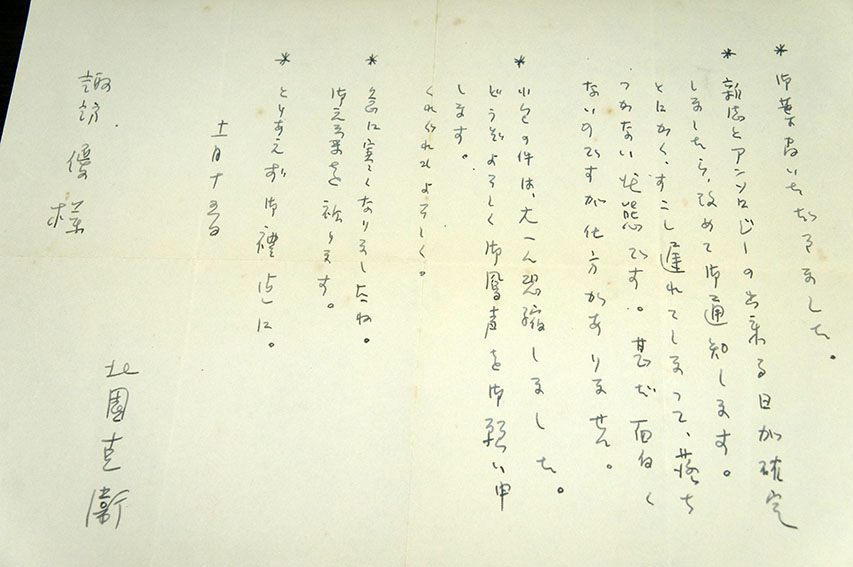 * 御葉書いただきました。
* 新誌とアンソロジーの出来る日が確定
しましたら、改めて御通知します。
とにかく、すこし遅れてしまつて、落ち
つかない状態です。甚だ面白く
ないのですが仕方がありません。
* 小包の件は、大へん恐縮しました。
どうぞよろしく御鳳声を御願い申
します。
くれぐれもよろしく。
* 急に寒くなりましたね。
御元気を祈ります。
* とりあえず御礼迄に。
十一月十五日
北園克衛
諏訪 優様